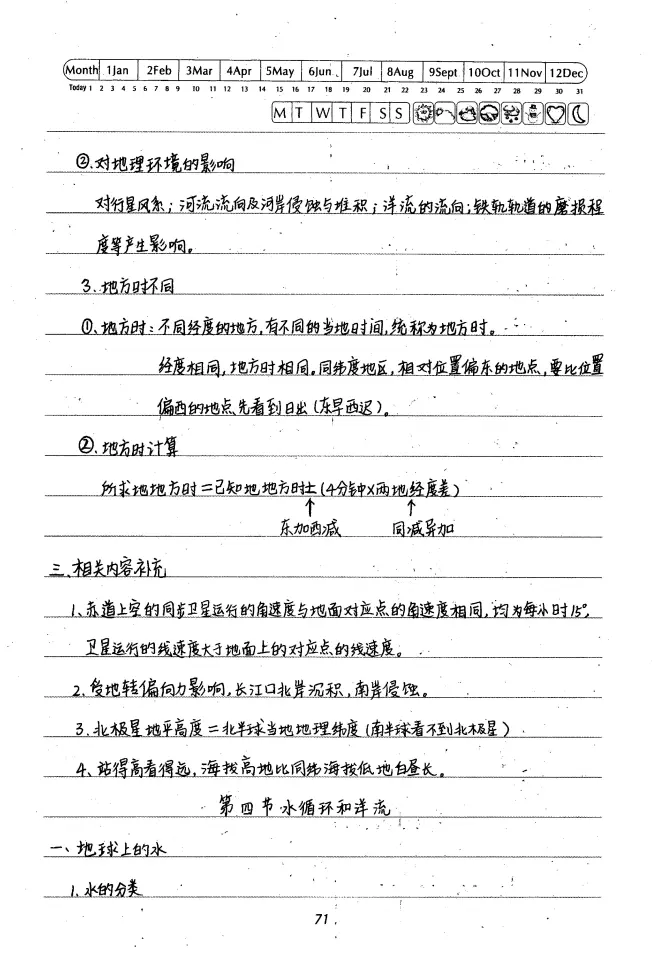 Month 1Jan 2Feb 3Mar 4Apr 5May 6Jun 7Jul 8Aug 9Sept 10Oct 11Nov 12Dec
Today 1 2 3 4 5 6 7 8 9 10 11 12 13 14 15 16 17 18 19 20 21 22 23 24 25 26 27 28 29 30 31
M T W T F S S
②.对地理环境的影响
对行星风系；河流流向及河岸侵蚀与堆积；洋流的流向;铁轨轨道的磨损程
度等产生影响。
3.地方时不同
①、地方时：不同经度的地方,有不同的当地时间,统称为地方时。
经度相同,地方时相同。同纬度地区,相对位置偏东的地点,要比位置
偏西的地点先看到日出(东早西迟)。
②.地方时计算
所求地地方时=已知地地方时±(4分钟×两地经度差)
↑ ↑
东加西减 同减异加
三、相关内容补充
1、赤道上空的同步卫星运行的角速度与地面对应点的角速度相同,均为每小时15°,
卫星运行的线速度大于地面上的对应点的线速度。
2、受地转偏向力影响,长江口北岸沉积,南岸侵蚀。
3.北极星地平高度=北半球当地地理纬度(南半球看不到北极星)
4、站得高看得远,海拔高地比同纬海拔低地白昼长。
第四节 水循环和洋流
一、地球上的水
1.水的分类
71